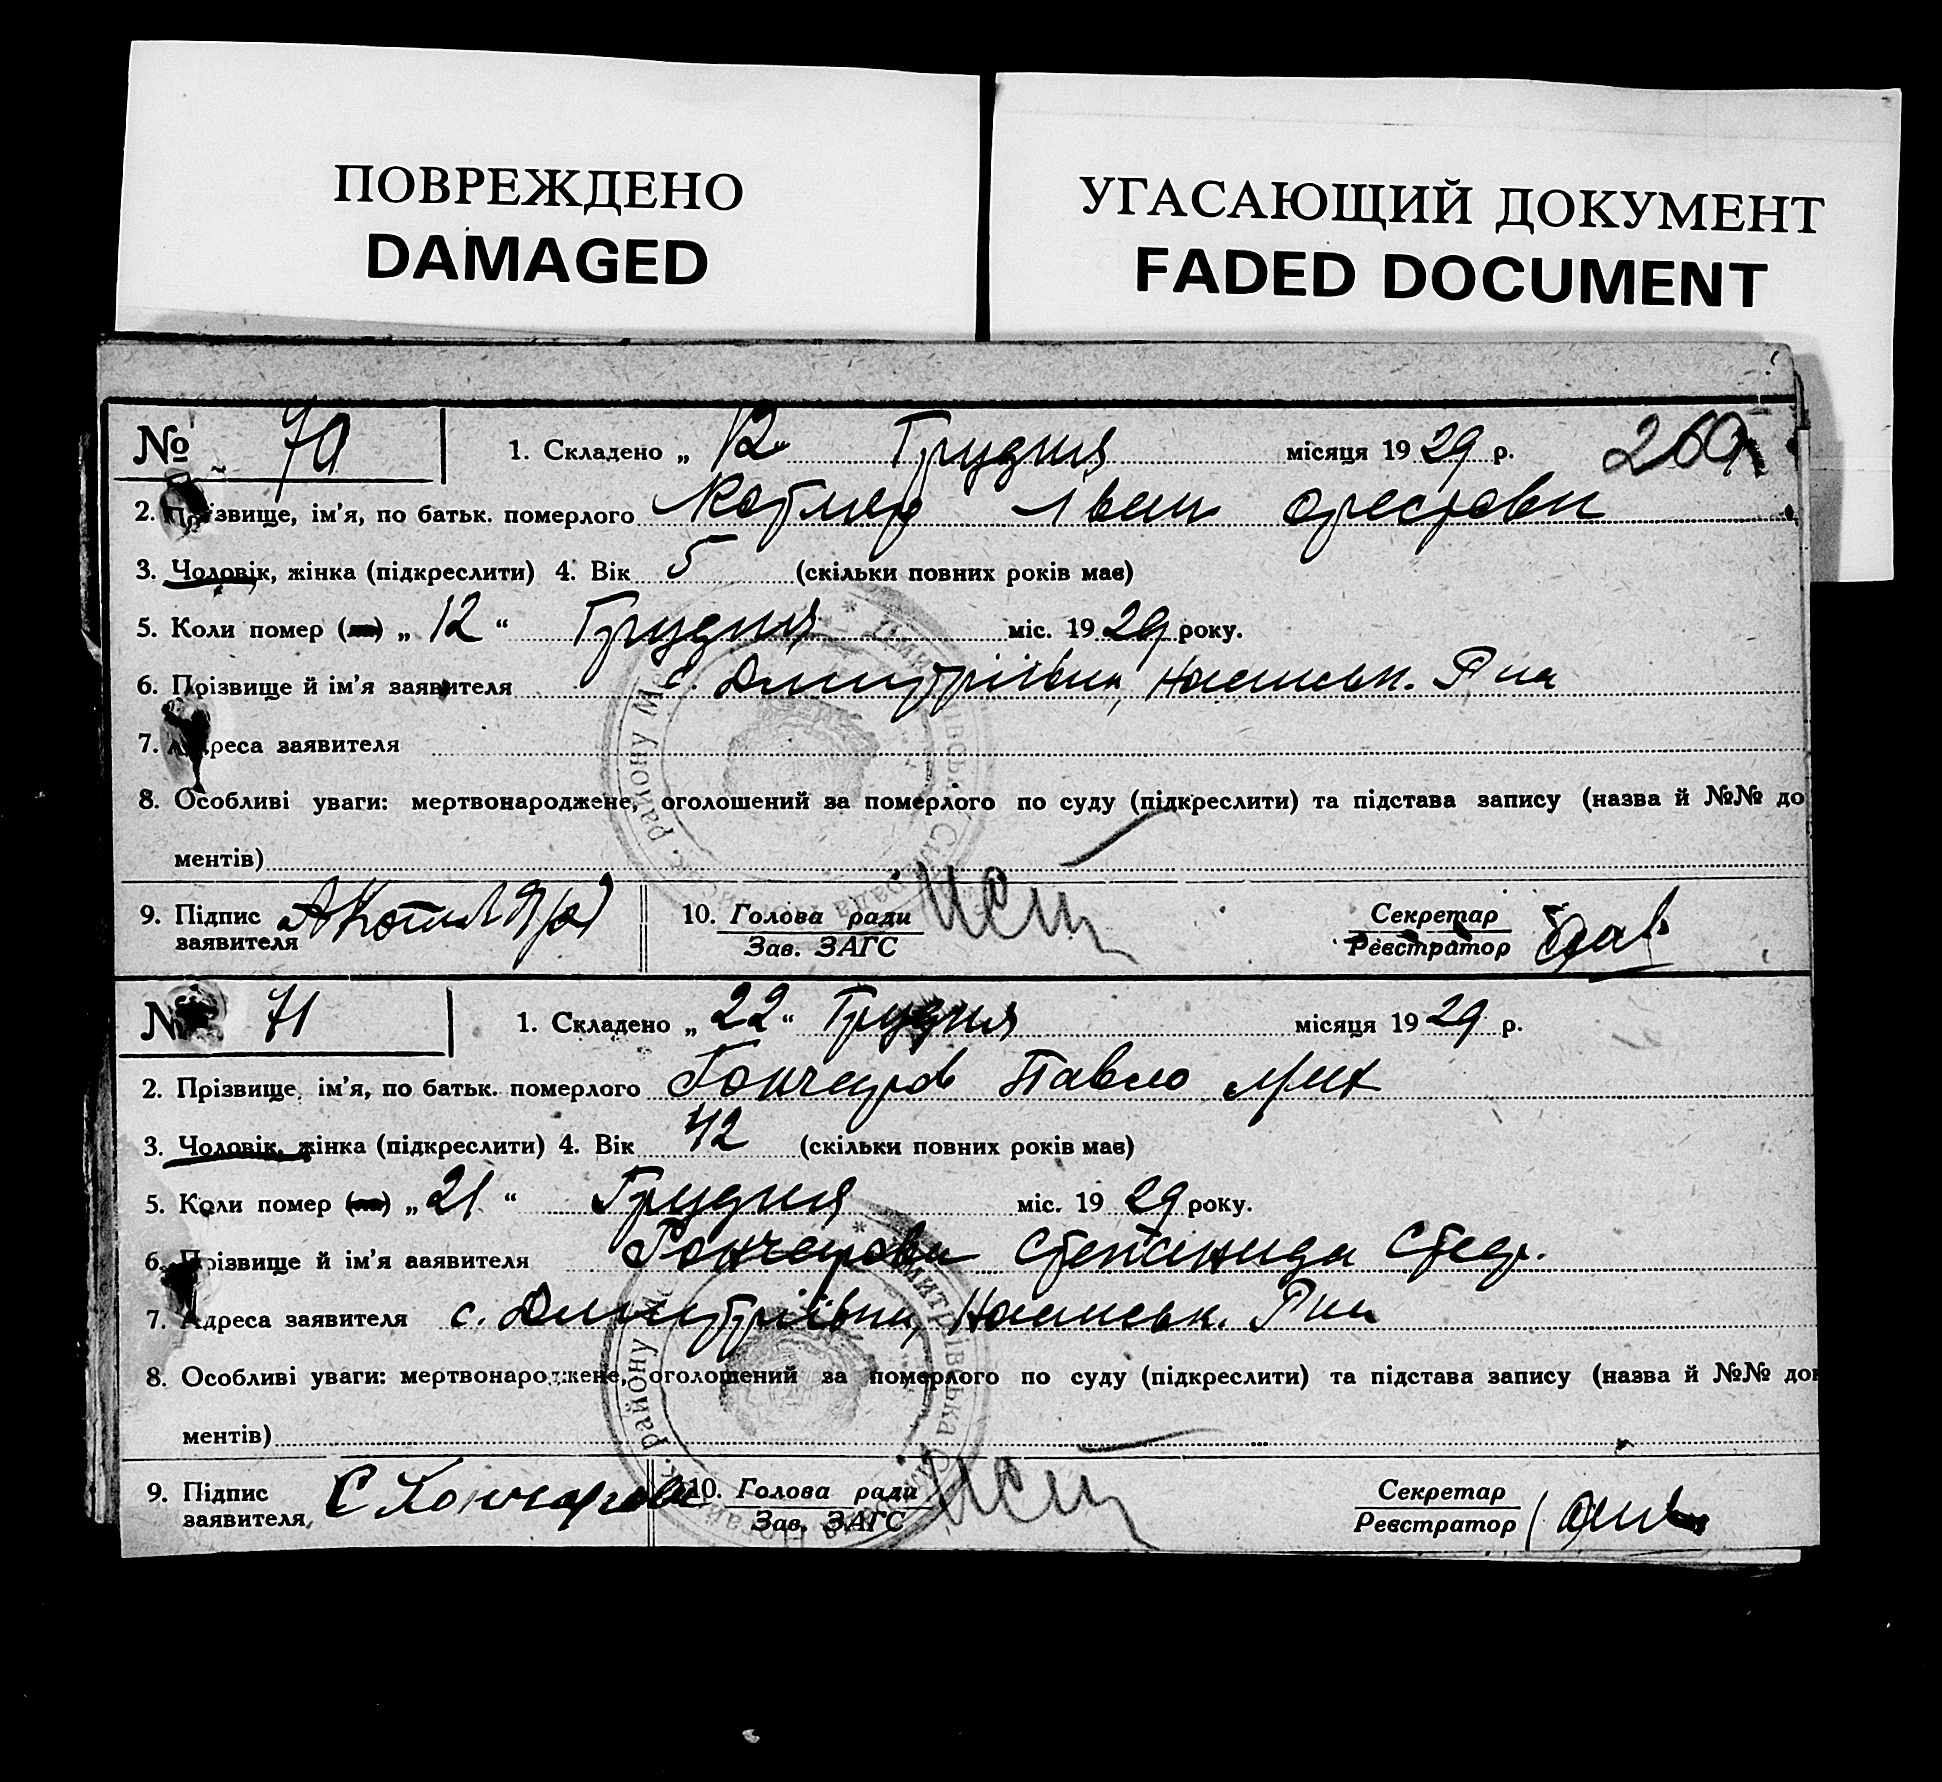 ПОВРЕЖДЕНО
DAMAGED
УГАСАЮЩИЙ ДОКУМЕНТ
FADED DOCUMENT
№ 70 1. Складено „ 12 Грудня місяця 1929 р. 260
2. Прізвище, ім'я, по батьк. померлого Котляр Іван
3. Чоловік, жінка (підкреслити) 4. Вік 5 (скільки повних років має)
5. Коли помер (ла) „ 12 “ Грудня міс. 1929 року.
6. Прізвище й ім'я заявителя с. Дмитріївки, Р на
7. Адреса заявителя
8. Особливі уваги: мертвонароджене, оголошений за померлого по суду (підкреслити) та підстава запису (назва й №№ до
ментів)
9. Підпис заявителя 10. Голова ради Зав. ЗАГС Секретар Реєстратор
№ 71 1. Складено „ 22 “ Грудня місяця 1929 р.
2. Прізвище, ім'я, по батьк. померлого Гончаров Павло Мих
3. Чоловік, жінка (підкреслити) 4. Вік 42 (скільки повних років має)
5. Коли помер (ла) „ 21 “ Грудня міс. 1929 року.
6. Прізвище й ім'я заявителя Гончарова Степанида
7. Адреса заявителя с. Дмитріївки, Р на
8. Особливі уваги: мертвонароджене, оголошений за померлого по суду (підкреслити) та підстава запису (назва й №№ док
ментів)
9. Підпис заявителя С Гончарова 10. Голова ради Зав. ЗАГС Секретар Реєстратор